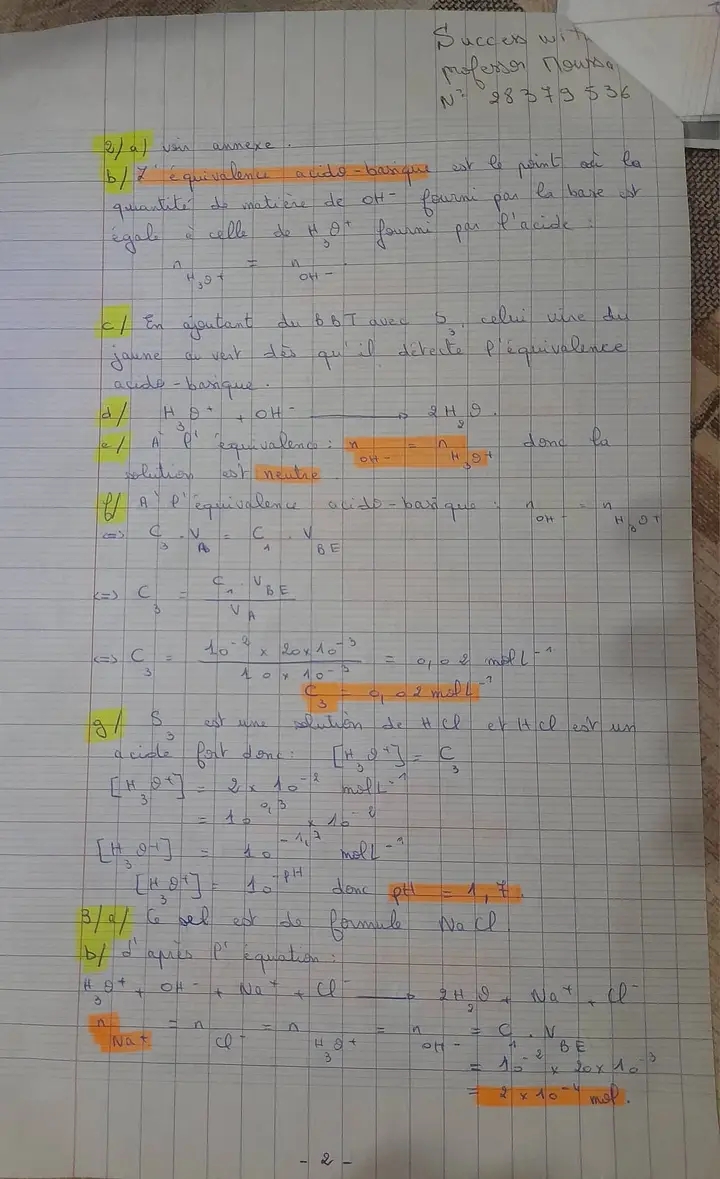 Success with
professor Moussa
N° 28379536
2/a) voir annexe.
b/ L'équivalence acido-basique est le point où la
quantité de matière de OH- fourni par la base est
égale à celle de H3O+ fourni par l'acide :
nH3O+ = nOH-.
c/ En ajoutant du BBT avec S3, celui vire du
jaune au vert dès qu'il détecte l'équivalence
acido-basique.
d/ H3O+ + OH- → 2H2O.
e/ A l'équivalence : nOH- = nH3O+ donc la
solution est neutre.
f/ A l'équivalence acido-basique : nOH- = nH3O+
<=> C3 . VA = C1 . VBE
<=> C3 = C1 . VBE / VA
<=> C3 = 10^-2 x 20x10^-3 / 10 x 10^-3 = 0,02 mol L^-1
C3 = 0,02 mol L^-1
g/ S3 est une solution de HCl et HCl est un
acide fort donc : [H3O+] = C3
[H3O+] = 2 x 10^-2 mol L^-1
= 10^0,3 x 10^-2
[H3O+] = 10^-1,7 mol L^-1
[H3O+] = 10^-pH donc pH = 1,7.
3/a/ Ce sel est de formule NaCl
b/ d'après l'équation :
H3O+ + OH- + Na+ + Cl- → 2H2O + Na+ + Cl-
nNa+ = nCl- = nH3O+ = nOH- = C1 . VBE
= 10^-2 x 20x10^-3
= 2 x 10^-4 mol.
- 2 -